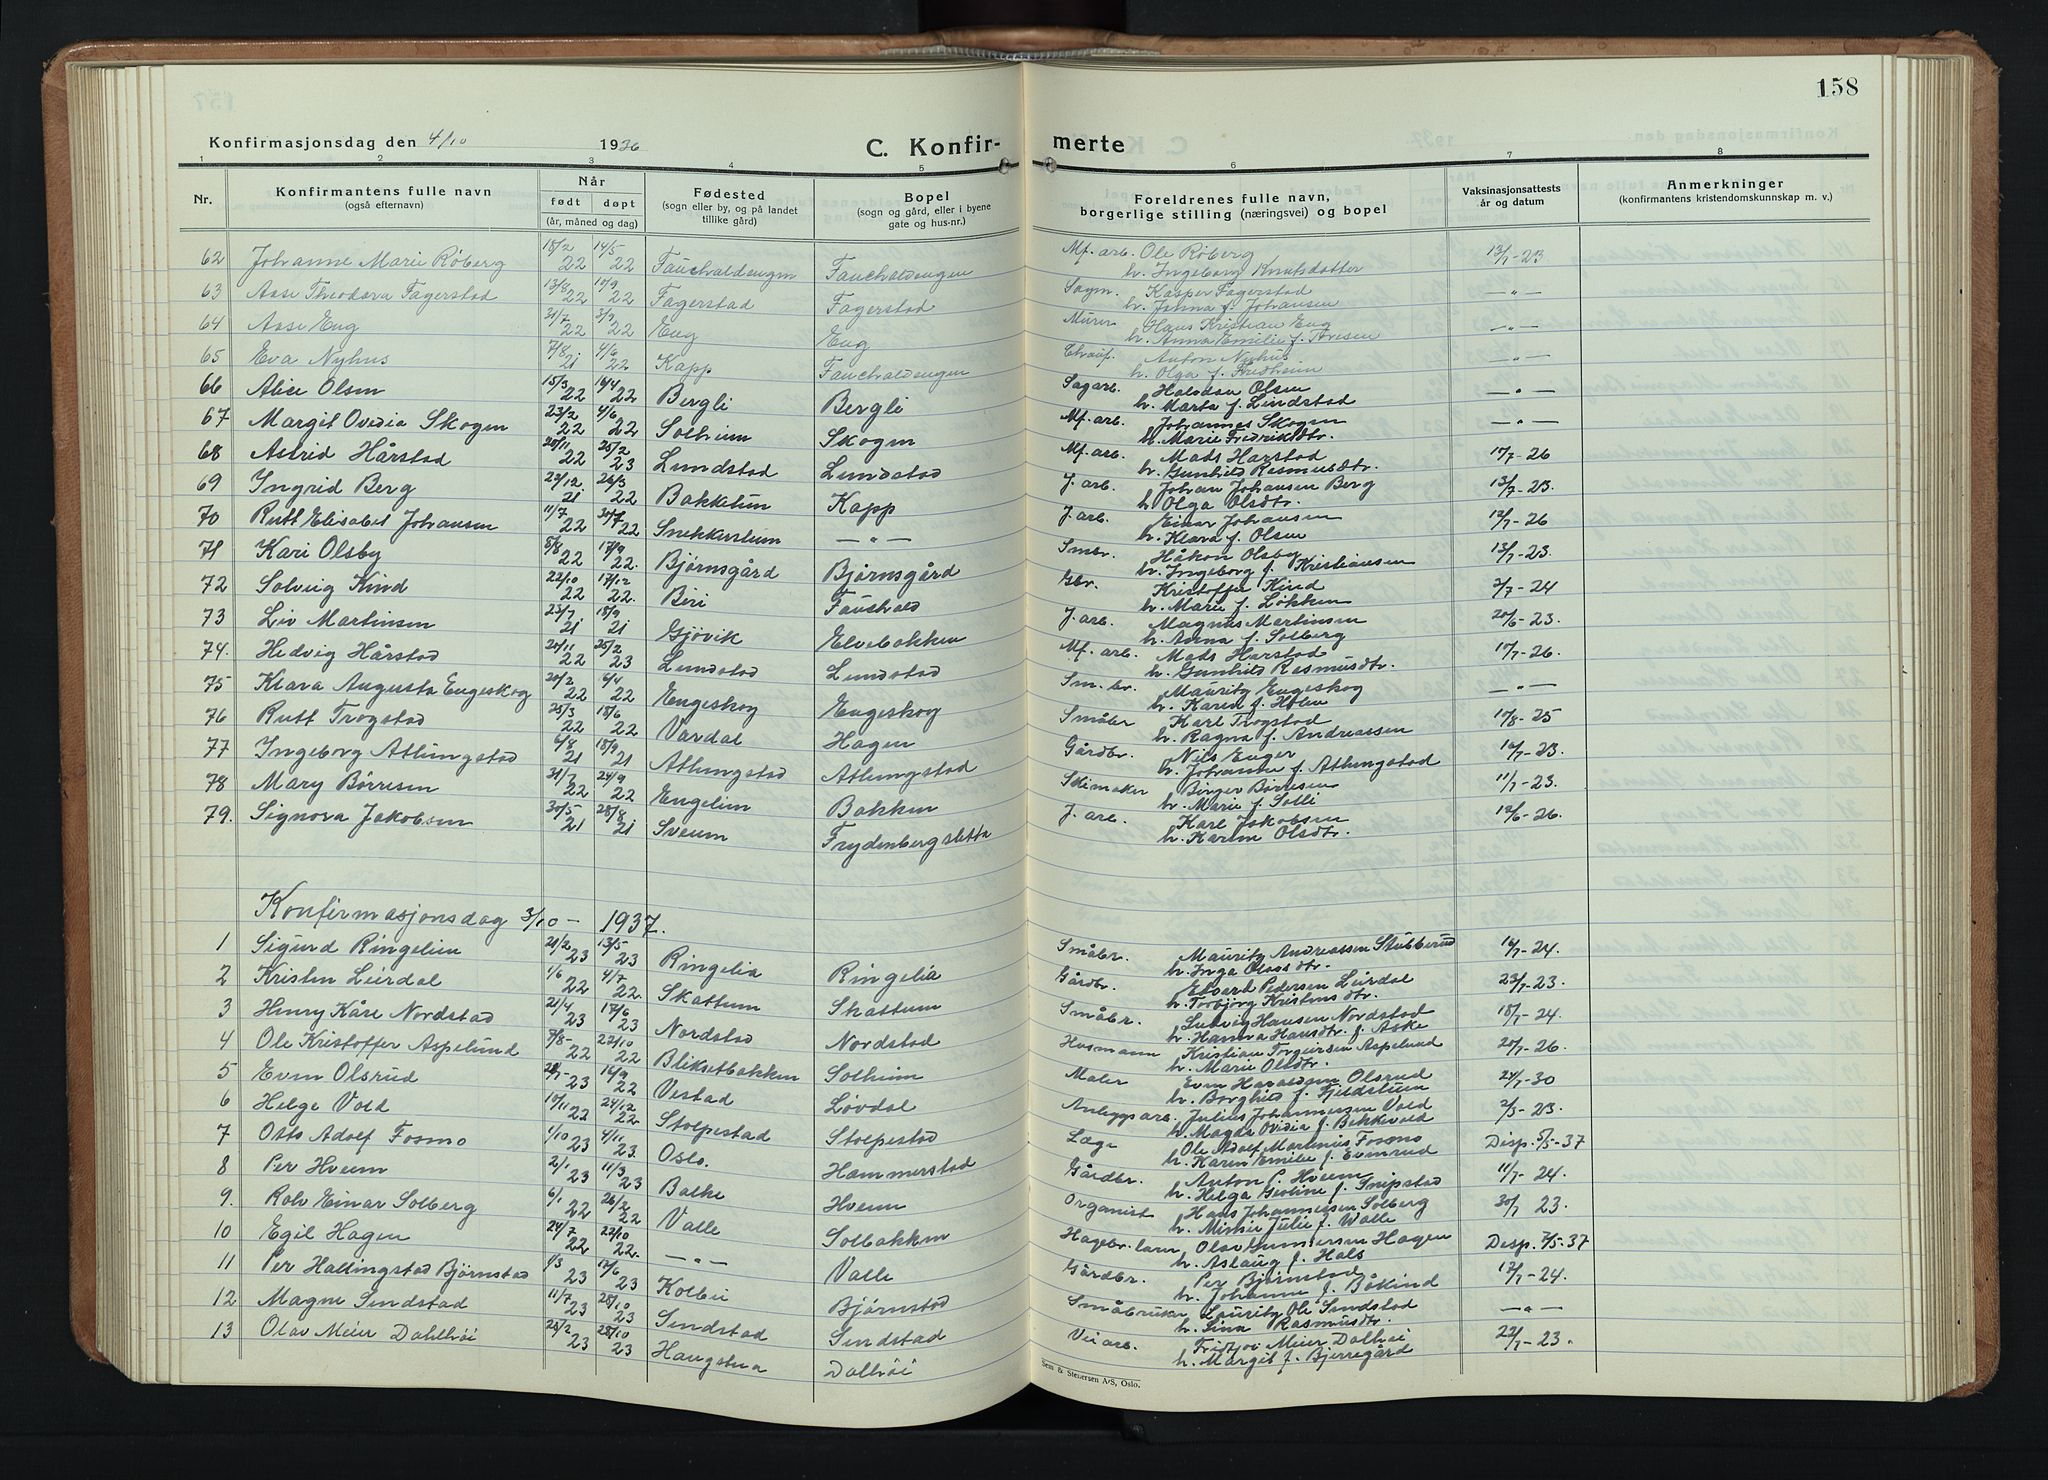 158
Konfirmasjonsdag den 4/10 1936 C. Konfirmerte
1 2 3 4 5 6 7 8
Nr. Konfirmantens fulle navn (også efternavn) Når født døpt (år, måned og dag) Fødested (sogn eller by, og på landet tillike gård) Bopel (sogn og gård, eller i byene gate og hus-nr.) Foreldrenes fulle navn, borgerlige stilling (næringsvei) og bopel Vaksinasjonsattests år og datum Anmerkninger (konfirmantens kristendomskunnskap m. v.)
62 Johanne Marie Røberg 18/2 22 14/5 22 Fauchaldengen Fauchaldengen Mf. arb. Ole Røberg 13/7-23
h. Ingeborg Knutsdatter
63 Aase Theodora Fagerstad 13/8 22 10/9 22 Fagerstad Fagerstad Sagm. Kasper Fagerstad —"—
h. Johna f. Johansen
64 Aase Eug 31/7 22 3/9 22 Eug Eug Murer Hans Kristian Eug —"—
h. Anna Emilie f. Iversen
65 Eva Nyhus 7/8 21 4/6 22 Kapp Fauchaldengen Chauf. Anton Nyhus —"—
h. Olga f.
66 Alice Olsen 15/3 22 16/4 22 Bergli Bergli Sagarb. Halvdan Olsen —"—
h. Marta f. Lindstad
67 Margit Ovidia Skogen 23/2 22 4/6 22 Solheim Skogen Mf. arb. Johannes Skogen —"—
h. Marie Fredriksdtr.
68 Astrid Hårstad 20/11 22 25/2 23 Lundstad Lundstad Mf. arb. Mads Harstad 17/7-26
h. Gunhild Rasmusdtr.
69 Ingrid Berg 22/12 21 26/3 22 Bakketun Kapp J. arb. Johan Johansen Berg 13/7-23.
h. Olga Olsdtr.
70 Rutt Elisabet Johansen 11/7 22 30/7 22 Snekkerstuen —"— J. arb. Einar Johansen 12/7-26
h. Klara f. Olsen
71 Kari Olsby 8/8 22 17/9 22. Bjørnsgård Bjørnsgård Smbr. Håkon Olsby 13/7-23.
h. Ingeborg f. Kristiansen
72 Solveig Kind 22/10 22 17/12 22. Biri Fauchald Gbr. Kristoffer Kind 2/7-24
h. Marie f. Løkken
73 Liv Martinsen 23/7 21 18/9 21 Gjøvik Elvebakken J. arb. Magnus Martinsen 20/6-23.
h. Anna f. Solberg
74. Hedvig Hårstad 20/11 22 25/2 23 Lundstad Lundstad Mf. arb. Mads Harstad 17/7-26.
h. Gunhild Rasmusdtr.
75 Klara Augusta Engeskog 20/2 22 6/4 22 Engeskog Engeskog Sm. br. Mauritz Engeskog —"—
h. Karen f. Holm
76 Rutt Trogstad 25/3 22 18/6 22 Vardal Hagen Småbr Karl Trogstad 17/8-25
h. Ragna f. Andreassen
77 Ingeborg Atlungstad 6/8 21 18/9 21 Atlungstad Atlungstad Gårdbr. Nils Enger 16/7-23.
h. Johanne f. Atlungstad
78 Mary Børresen 31/7 22 24/9 22 Engelien Bakken Skimaker Birger Børresen 11/7-23.
h. Marie f. Solli
79. Signora Jakobsen 30/5 21 28/8 21 Sveum Frydenbergsletta J. arb. Karl Jakobsen 12/6-26.
h. Karen Olsdtr.
Konfirmasjonsdag 3/10 - 1937.
1 Sigurd Ringelien 21/2 23 13/5 23 Ringelia Ringelia Småbr. Mauritz Andreassen Stubberud 16/7-24.
h. Inga Olavsdtr.
2 Kristen Leirdal 1/6 22 4/7 22. Skattum Skattum Gårdbr. Edvard Pedersen Leirdal 23/7-23.
h. Torbjørg Kristensdtr.
3 Henry Kåre Nordstad 21/4 23 17/6 23 Nordstad Nordstad Småbr. Ludvig Hansen Nordstad 18/7-24.
h. Hanna Hansdtr. f. Aske
4 Ole Kristoffer Aspelund 7/8- 22 22/10 22 Bliksetbakken Solheim Husmann Kristian Torgersen Aspelund 20/7-26.
h. Marie Olsdtr.
5 Even Olsrud 23 16/9 22 Vestad Løvdal Maler Even Haraldsen Olsrud 24/7-30
h. Borghild f. Fjeldstuen
6 Helge Vold 10/11 22 24/12 22 Stolpestad Stolpestad Anleggsarb. Julius Johannessen Vold 2/5-23.
h. Magda Ovidia f. Bekkevold
7 Otto Adolf Fosmo 1/10 23 4/11 23. Oslo. Hammerstad Læge Ole Adolf Martinius Fosmo Disp. 5/5-37
h. Karen Emilie f. Evenrud
8 Per Hveem 2/1 23 11/3 23 Balke Hveem Gårdbr. Anton P. Hveem 11/7-24.
h. Helga Geoline f. Snipstad
9. Rolv Einar Solberg 6/1 22 26/2 22 Valle Solbakken Organist Hans Johannessen Solberg 30/1 23.
h. Minnie Julie f. Walle
10 Egil Hagen 24/7 22 22/10 22. —"— Valle Hagebr. lærer Olav Gundersen Hagen Disp. 7/5-37
h. Aslaug f. Hals
11 Per Hallingstad Bjørnstad 1/3 23 17/6 23 Kolbu Bjørnstad Gårdbr. Per Bjørnstad 17/7-24.
h. Johanne f. Båkind
12 Magne Sindstad 11/7 23 28/10 23 Sindstad Sindstad Småbruker Lauritz Ole Sindstad —"—
h. Lina Rasmusdtr.
13 Olav Meier Dahlhøi 28/2 23 28/10 23 Haugstua Dalhøi Veiarb. Fridtjov Meier Dalhøi 22/7-23.
h. Margit f. Bjerregård
Sem & Stenersen A/S, Oslo.